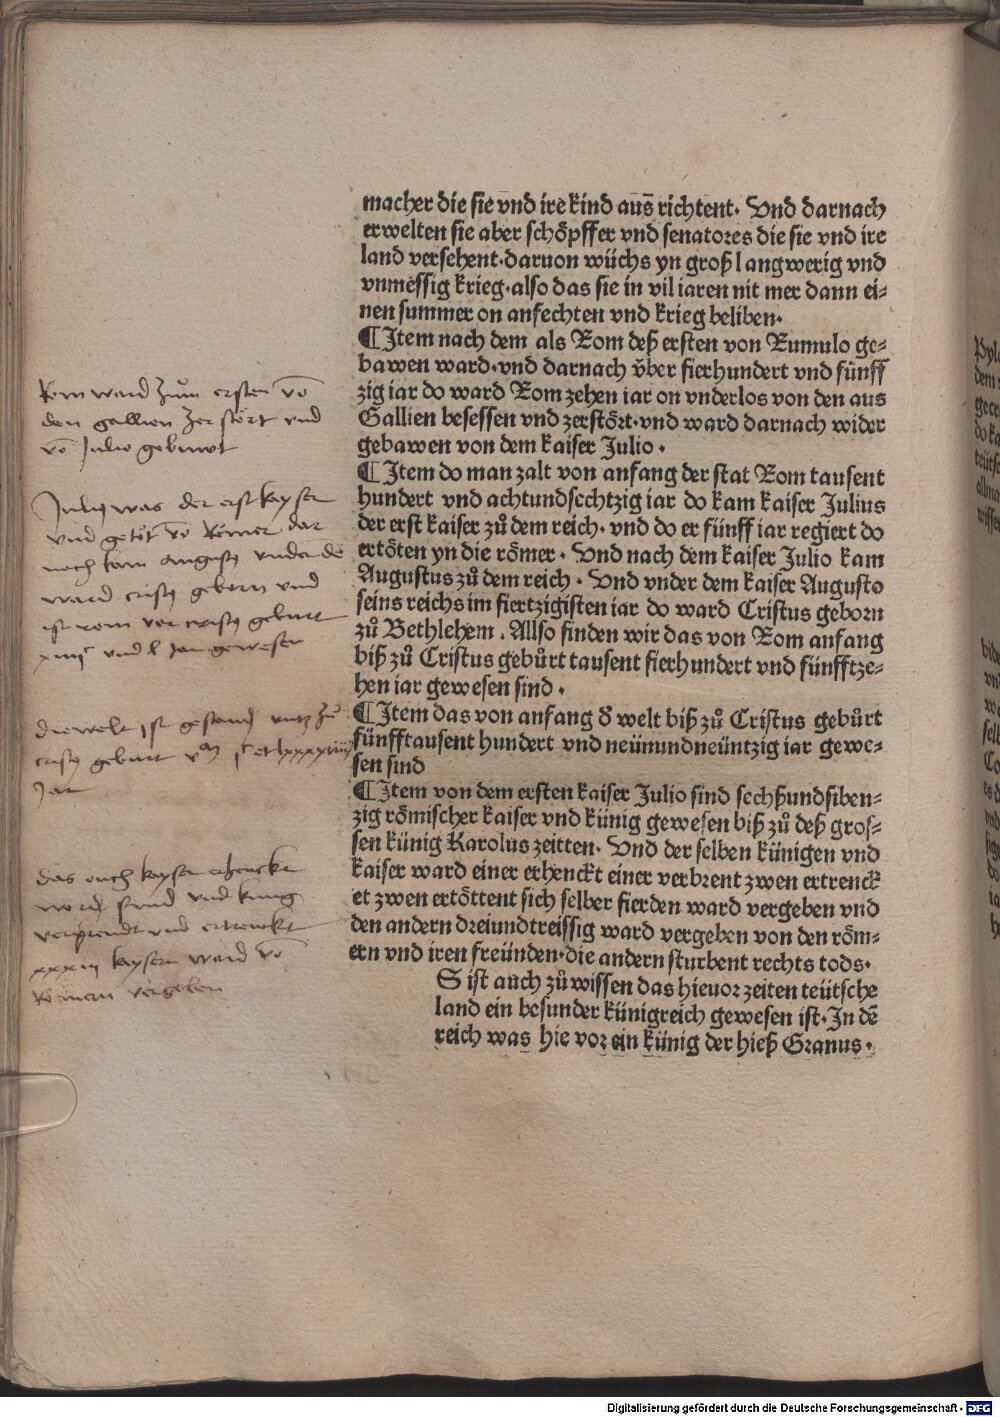 macher die sie vnd ire kind auß richtent. Vnd darnach
erwelten sie aber schöpffer vnd senatores die sie vnd ire
land versehent. daruon wüchs yn groß langwerig vnd
vnmessig krieg. also das sie in vil iaren nit mer dann ei=
nen summer on anfechten vnd krieg beliben.
¶ Item nach dem als Rom deß ersten von Rumulo ge=
bawen ward. vnd darnach v̈ber fierhundert vnd fünff
zig iar do ward Rom zehen iar on vnderlos von den aus
Gallien besessen vnd zerstört. vnd ward darnach wider
gebawen von dem kaiser Julio.
¶ Item do man zalt von anfang der stat Rom tausent
hundert vnd achtundsechtzig iar do kam kaiser Julius
der erst kaiser zů dem reich. vnd do er fünff iar regiert do
ertöten yn die römer. Vnd nach dem kaiser Julio kam
Augustus zů dem reich. Vnd vnder dem kaiser Augusto
seins reichs im fiertzigisten iar do ward Cristus geborn
zů Bethlehem. Allso finden wir das von Rom anfang
biß zů Cristus gebůrt tausent fierhundert vnd fünfftze=
hen iar gewesen sind.
¶ Item das von anfang d̕ welt biß zů Cristus gebůrt
fünfftausent hundert vnd neünundneüntzig iar gewe=
sen sind
¶ Item von dem ersten kaiser Julio sind sechßundsiben=
zig römischer kaiser vnd künig gewesen biß zů deß gros=
sen künig Karolus zeitten. Vnd der selben künigen vnd
kaiser ward einer erhenckt einer verbrent zwen ertrenck
et zwen ertöttent sich selber fierden ward vergeben vnd
den andern dreiundtreissig ward vergeben von den röm=
ern vnd iren freünden. die andern sturbent rechts tods.
S ist auch zů wissen das hieuor zeiten teütsche
land ein besunder künigreich gewesen ist. In dē
reich was hie vor ein künig der hieß Granus.
Rom ward zům ersten vō
den gallien zerstört vnd
vō Julio gebuwt
Julius was der erst keyser
vnd getöt vō Römer dar
noch kam augustus vnder dē
ward cristus geborn vnd
ist rom vor cristus geburt
gewesen
die welt ist gestanden vntz zů
cristus geburt
Jar
das ouch keyser erhenckt
worden sind vnd kung
verprendt vnd ertrenckt
xxxiij keysern ward vō
Römern vergeben
Digitalisierung gefördert durch die Deutsche Forschungsgemeinschaft - DFG